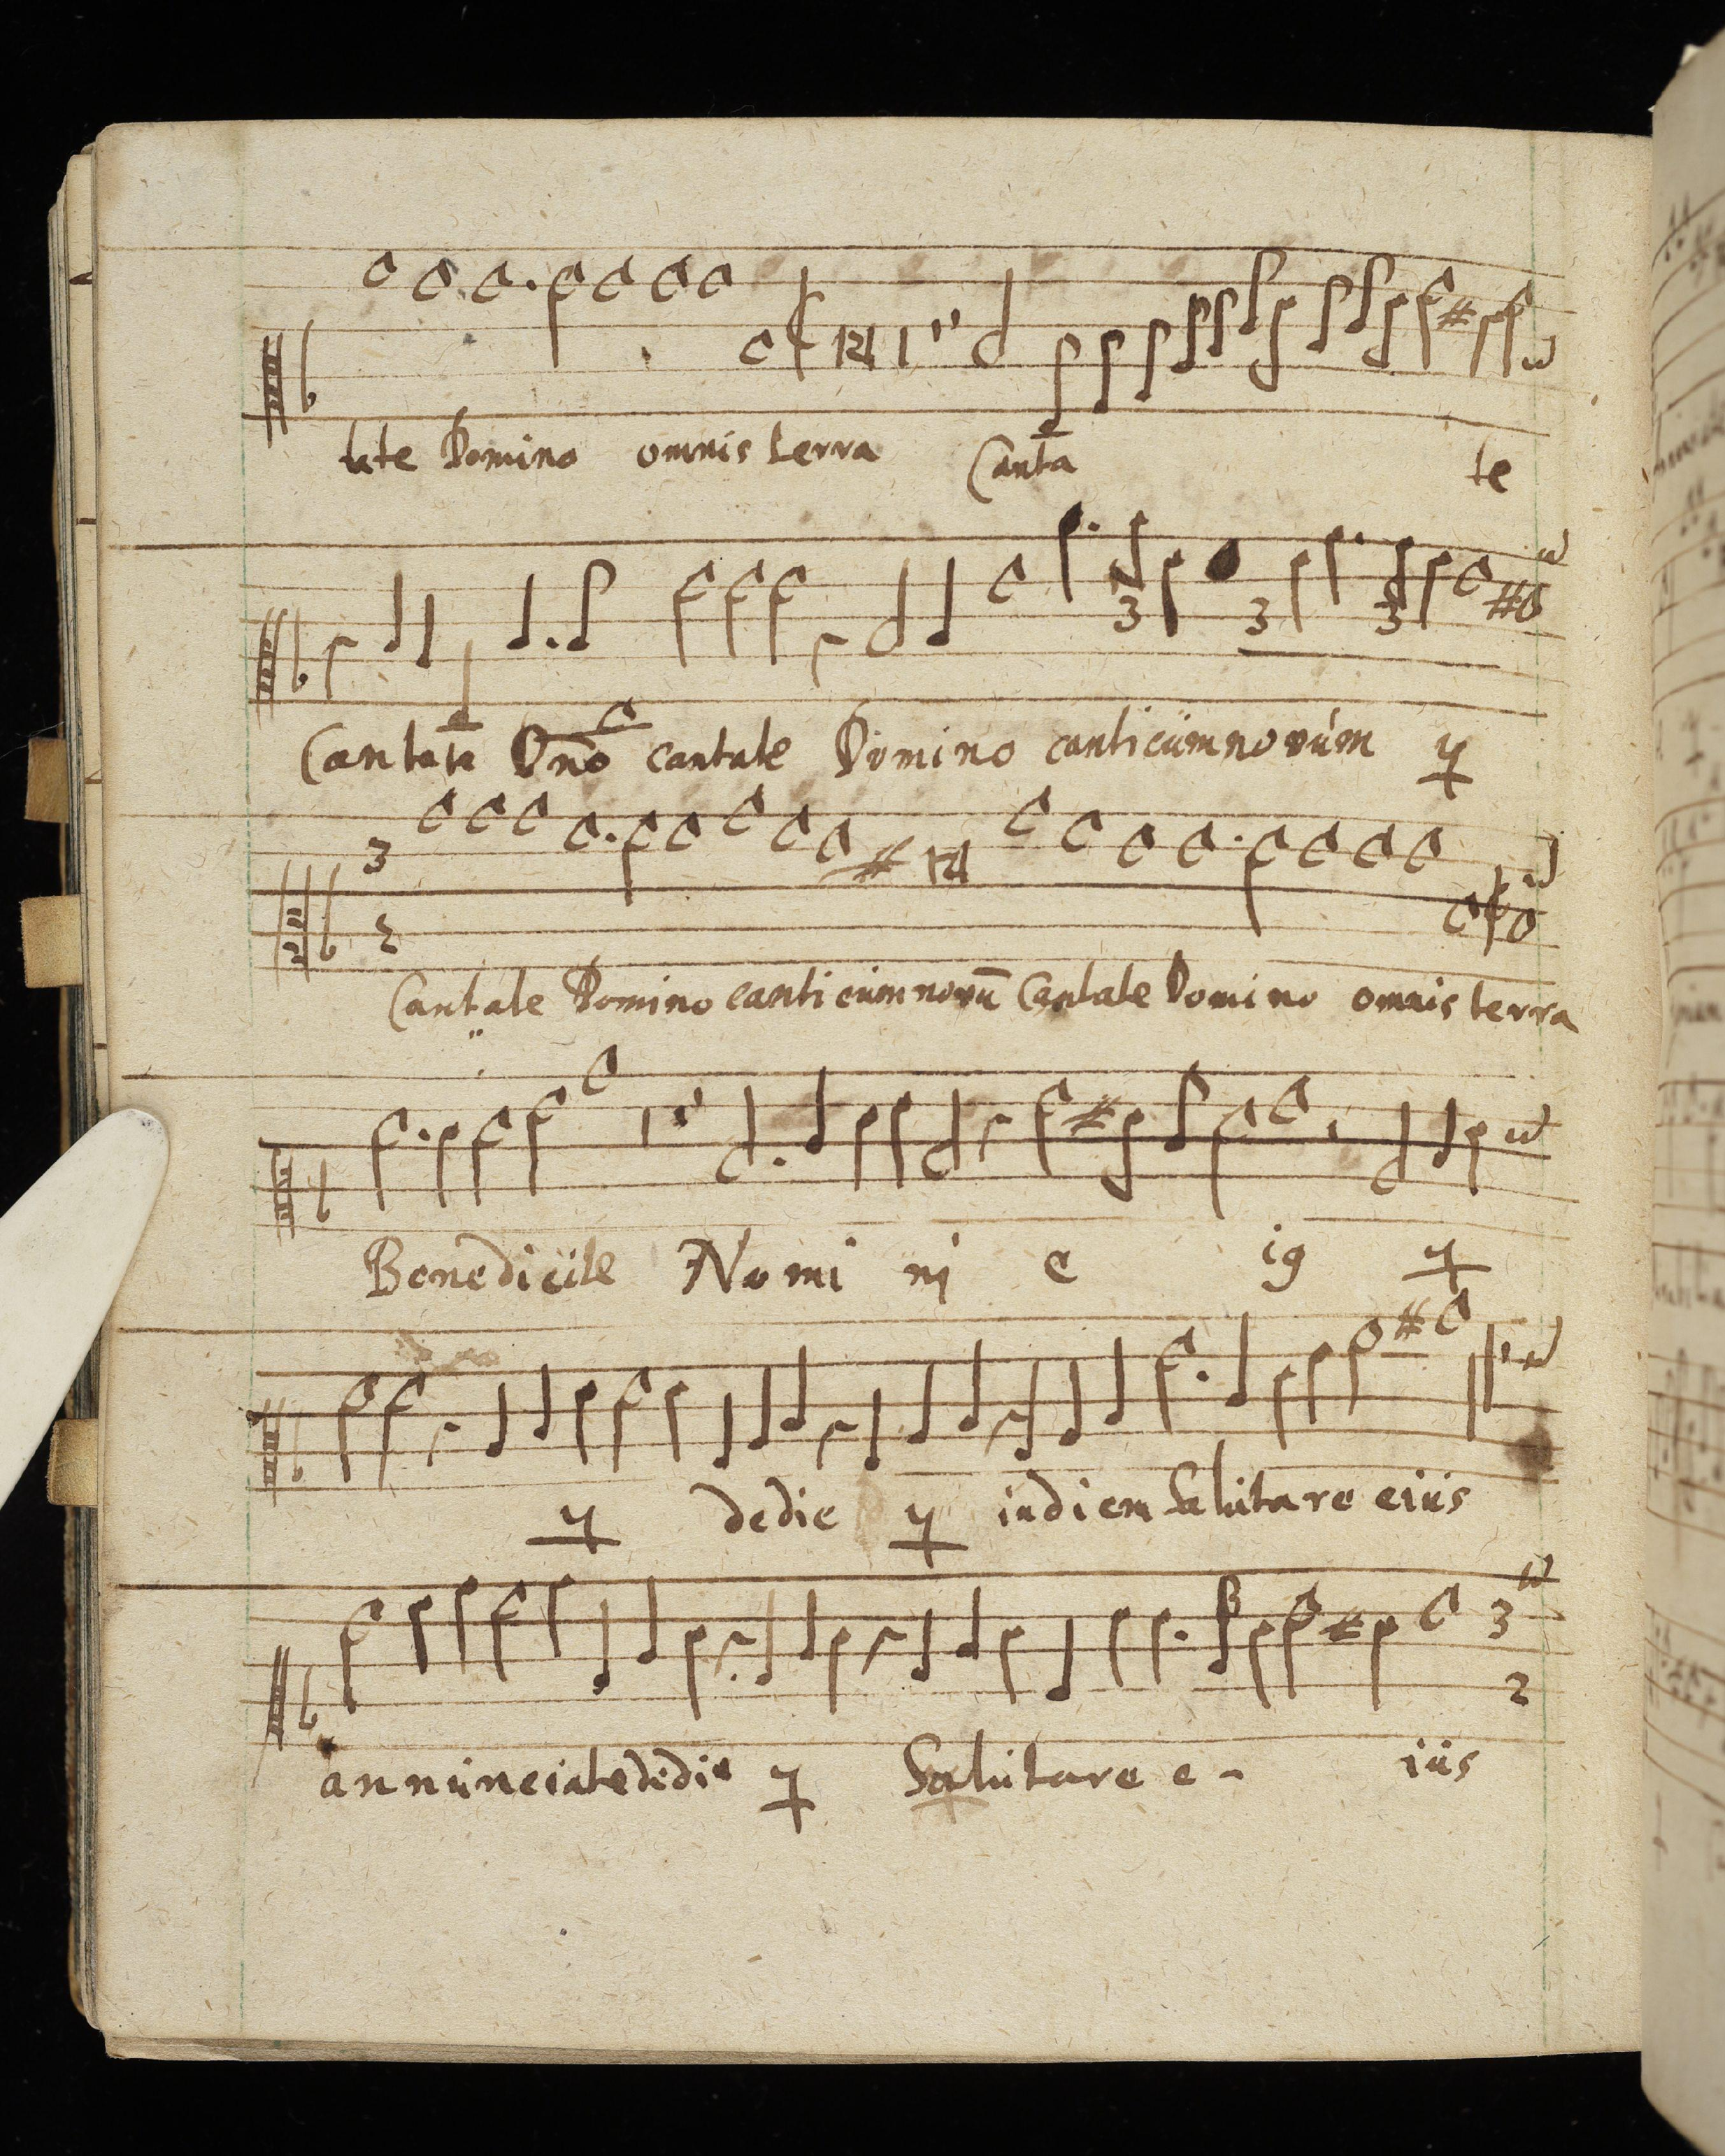 tate Domino omnis terra Canta te
Cantate Dn̄o cantate Domino canticùm novùm ij
Cantate Domino canticùm novū Cantate Domino omnis terra
Benedicite Nomi ni e iꝯ ij
ij dedie ij indiem Salùtare eiùs
annùnciate dedie ij Salùtare e - iùs